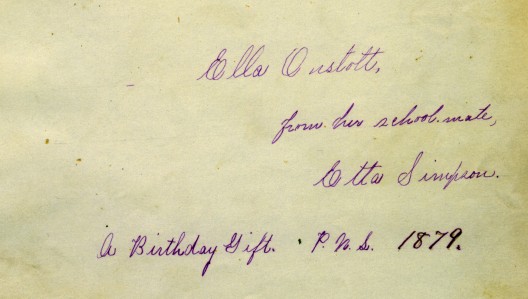 Ella Onstott,
from her school-mate,
Etta Simpson.
A Birthday Gift. P. N. S. 1879.